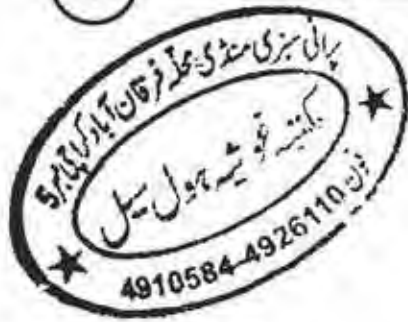 پرانی سبزی منڈی محلہ فرقان آباد کراچی نمبر 5
مکتبہ غوثیہ ہول سیل
فون: 4926110-4910584